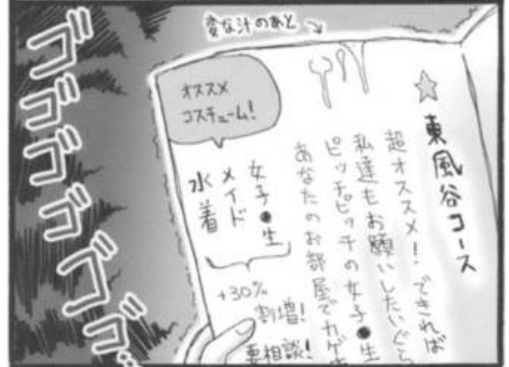 変な汁のあと
☆東風谷コース
超オススメ！できれば
私達もお願いしたいぐら
ピッチピッチの女子●生
あなたのお部屋でカゲキ
オススメ
コスチューム！
女子●生
メイド
水着
+30%
割増！
要相談！
ゴゴゴゴゴゴ…